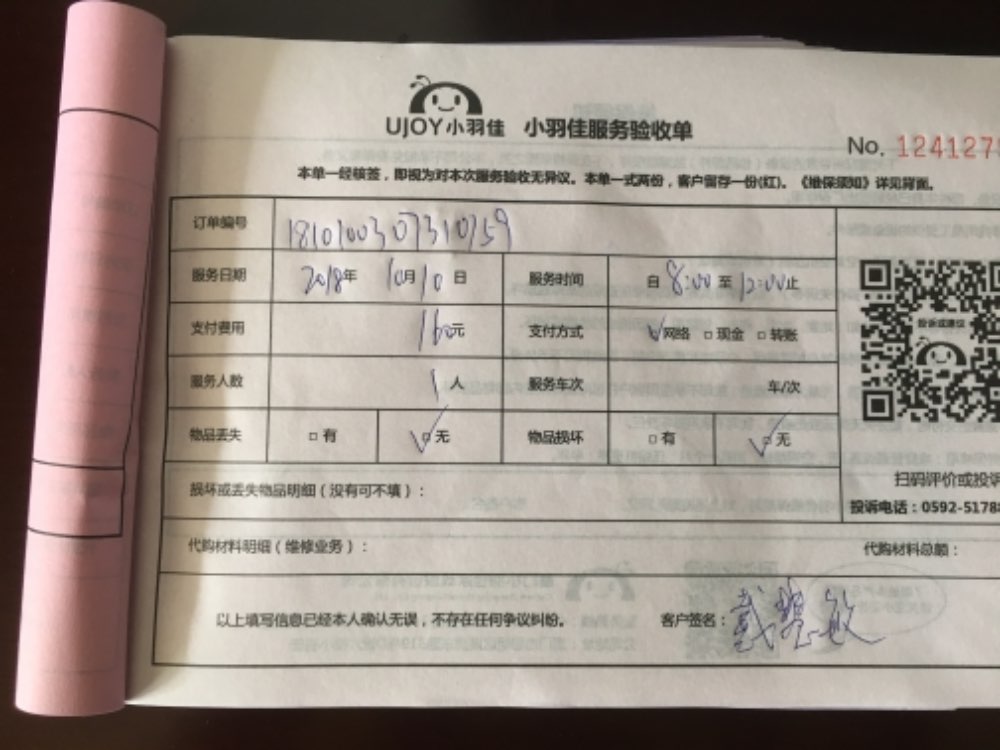 UJOY小羽佳 小羽佳服务验收单
No. 1241275
本单一经核签，即视为对本次服务验收无异议。本单一式两份，客户留存一份(红)。《维保须知》详见背面。
订单编号 1810100307310759
服务日期 2018年 10月10日 服务时间 自 8:00 至 12:00止
支付费用 160元 支付方式 ☑网络 □现金 □转账
服务人数 1人 服务车次 车/次
物品丢失 □有 ☑无 物品损坏 □有 ☑无
投诉或建议
扫码评价或投诉
损坏或丢失物品明细（没有可不填）：
投诉电话：0592-5178
代购材料明细（维修业务）： 代购材料总额：
以上填写信息已经本人确认无误，不存在任何争议纠纷。 客户签名：戴碧敏